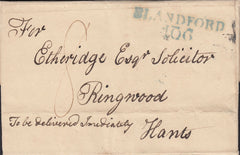 BLANDFORD
106
For
Etheridge Esqr Solicitor
Ringwood
To be delivered Imediately
Hants